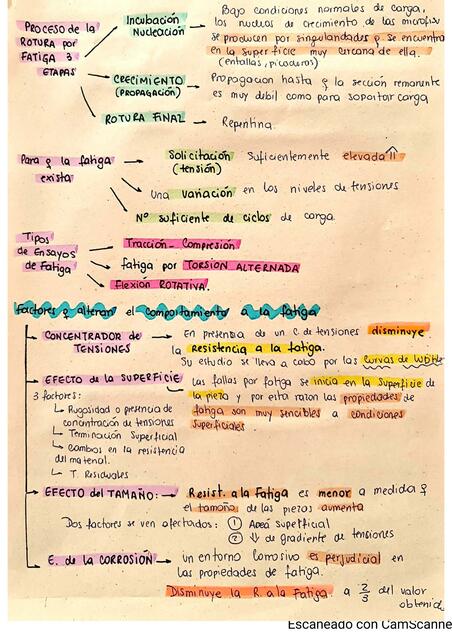 Bajo condiciones normales de carga,
PROCESO de la
ROTURA por
FATIGA 3
ETAPAS
Incubación
Nucleación
los nucleos de crecimiento de las microfis
se producen por singularidades q se encuentra
en la superficie muy cercana de ella.
(entallas, picaduras)
CRECIMIENTO
(PROPAGACIÓN)
Propagacion hasta q la sección remanente
es muy débil como para soportar carga
ROTURA FINAL
Repentina.
Para q la fatiga
exista
Solicitación
(tensión)
Suficientemente elevada
Una variación en los niveles de tensiones
Nº suficiente de ciclos de carga.
Tipos
de Ensayos
de Fatiga
Tracción - Compresión
fatiga por TORSION ALTERNADA
Flexión ROTATIVA.
Factores q alteran el comportamiento a la fatiga
CONCENTRADOR de
TENSIONES
En presencia de un C. de tensiones disminuye
la resistencia a la fatiga.
Su estudio se lleva a cabo por las curvas de Wöhler
EFECTO de la SUPERFICIE
las fallas por fatiga se inicia en la superficie de
la pieza y por esta razon las propiedades de
fatiga son muy sencibles a condiciones
superficiales.
3 factores:
Rugosidad o presencia de
concentración de tensiones
Terminación Superficial
Cambios en la resistencia
del material.
T. Residuales
EFECTO del TAMAÑO:
Resist. a la Fatiga es menor a medida q
el tamaño de las piezas aumenta
Dos factores se ven afectados: 1 Area Superficial
2 ↓ de gradiente de tensiones
E. de la CORROSIÓN
un entorno corrosivo es perjudicial en
las propiedades de fatiga.
Disminuye la R. a la Fatiga. a 2/3 del valor
obtenid
Escaneado con CamScanne